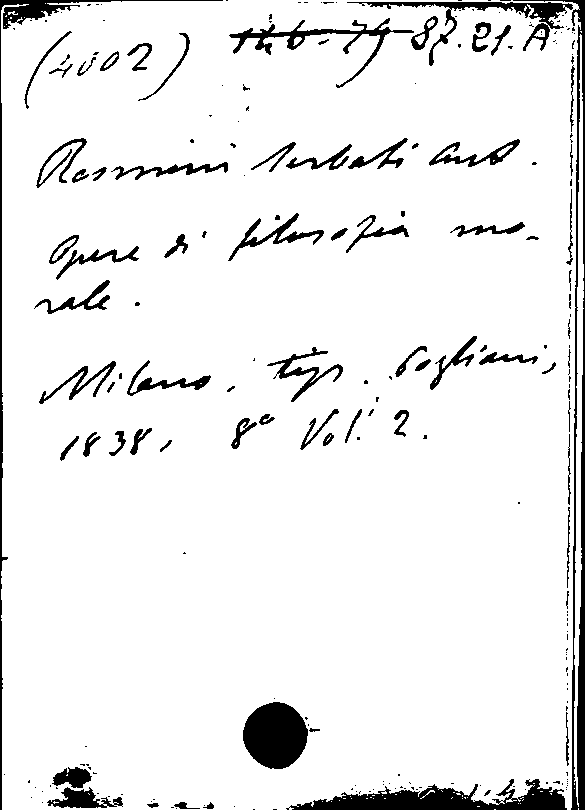 (4002) 146-79 87.21.A
Rosmini Serbati Ant.
Opere di filosofia mo-
rale.
Milano, tip. Pogliani,
1838, 8° Vol. 2.